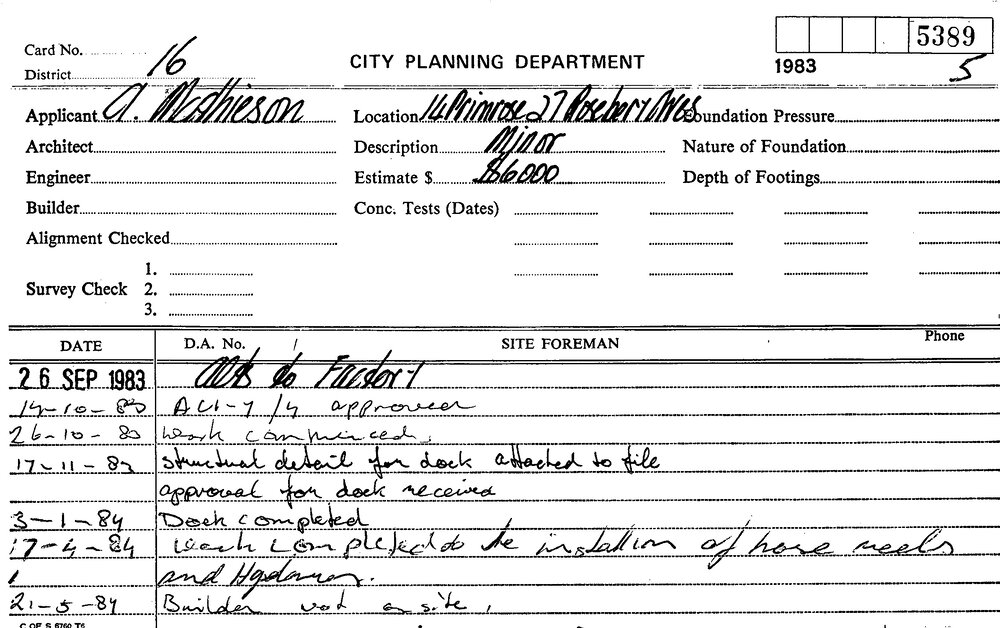 5389
Card No.
CITY PLANNING DEPARTMENT
1983 5
District 16
Applicant A. Mathieson Location 14 Primrose 27 Rosebery Aves Foundation Pressure
Architect Description Minor Nature of Foundation
Engineer Estimate $ $6000 Depth of Footings
Builder Conc. Tests (Dates)
Alignment Checked
1.
Survey Check 2.
3.
DATE D.A. No. SITE FOREMAN Phone
26 SEP 1983 Alts to Factory
14-10-83 approved
26-10-83 work commenced.
17-11-83 structural detail for dock attacted to file
approval for dock received
3-1-84 Dock completed
17-4-84 work completed to the of hose reels
and
21-5-84 Builder not on site.
C OF S 6760 T6